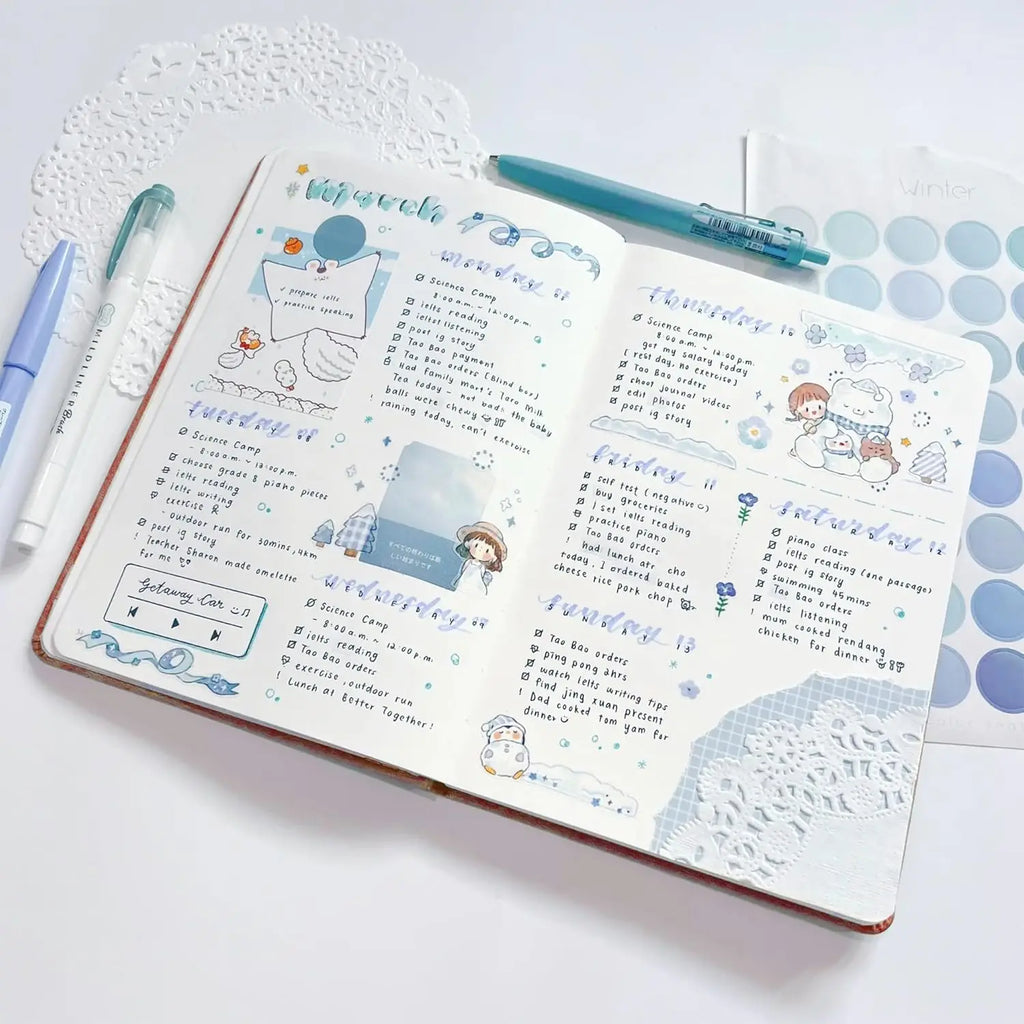 march
✓ prepare ielts
✓ practice speaking
monday 07
MONDAY
☑ Science Camp
8:00 a.m. ~ 12:00 p.m.
☑ ielts reading
☑ ielts listening
☑ post ig story
☑ Tao Bao payment
☑ Tao Bao orders (Blind box)
! Had Family Mart's Taro Milk
Tea today - not bad, the baby
balls were chewy
! raining today, can't exercise
tuesday 08
TUESDAY
☑ Science Camp
8:00 a.m. ~ 12:00 p.m.
☑ choose grade 8 piano pieces
ielts reading
☑ ielts writing
exercise
- outdoor run for 30mins, 4km
☑ post ig story
! Teacher Sharon made omelette
for me
Getaway Car
すべての終わりは新
しい始まりです
wednesday 09
WEDNESDAY
☑ Science Camp
- 8:00 a.m. ~ 12:00 p.m.
☑ ielts reading
☑ Tao Bao orders
exercise, outdoor run
! Lunch at Better Together!
thursday 10
THURSDAY
☑ Science Camp
8:00 a.m. ~ 12:00 p.m.
! got my salary today
(rest day, no exercise)
☑ Tao Bao orders
☑ shoot journal videos
☑ edit photos
☑ post ig story
friday 11
FRIDAY
☑ self test (negative☺)
☑ buy groceries
☑ 1 set ielts reading
practice piano
☑ Tao Bao orders
! had lunch at cho
today, I ordered baked
cheese rice pork chop
saturday 12
SATURDAY
☑ piano class
☑ ielts reading (one passage)
☑ post ig story
swimming 45mins
☑ Tao Bao orders
! ielts listening
! mum cooked rendang
chicken for dinner
sunday 13
SUNDAY
☑ Tao Bao orders
ping pong 2hrs
☑ watch ielts writing tips
☑ find jing xuan present
! Dad cooked tom yam for
dinner
MILDLINER Brush
Winter